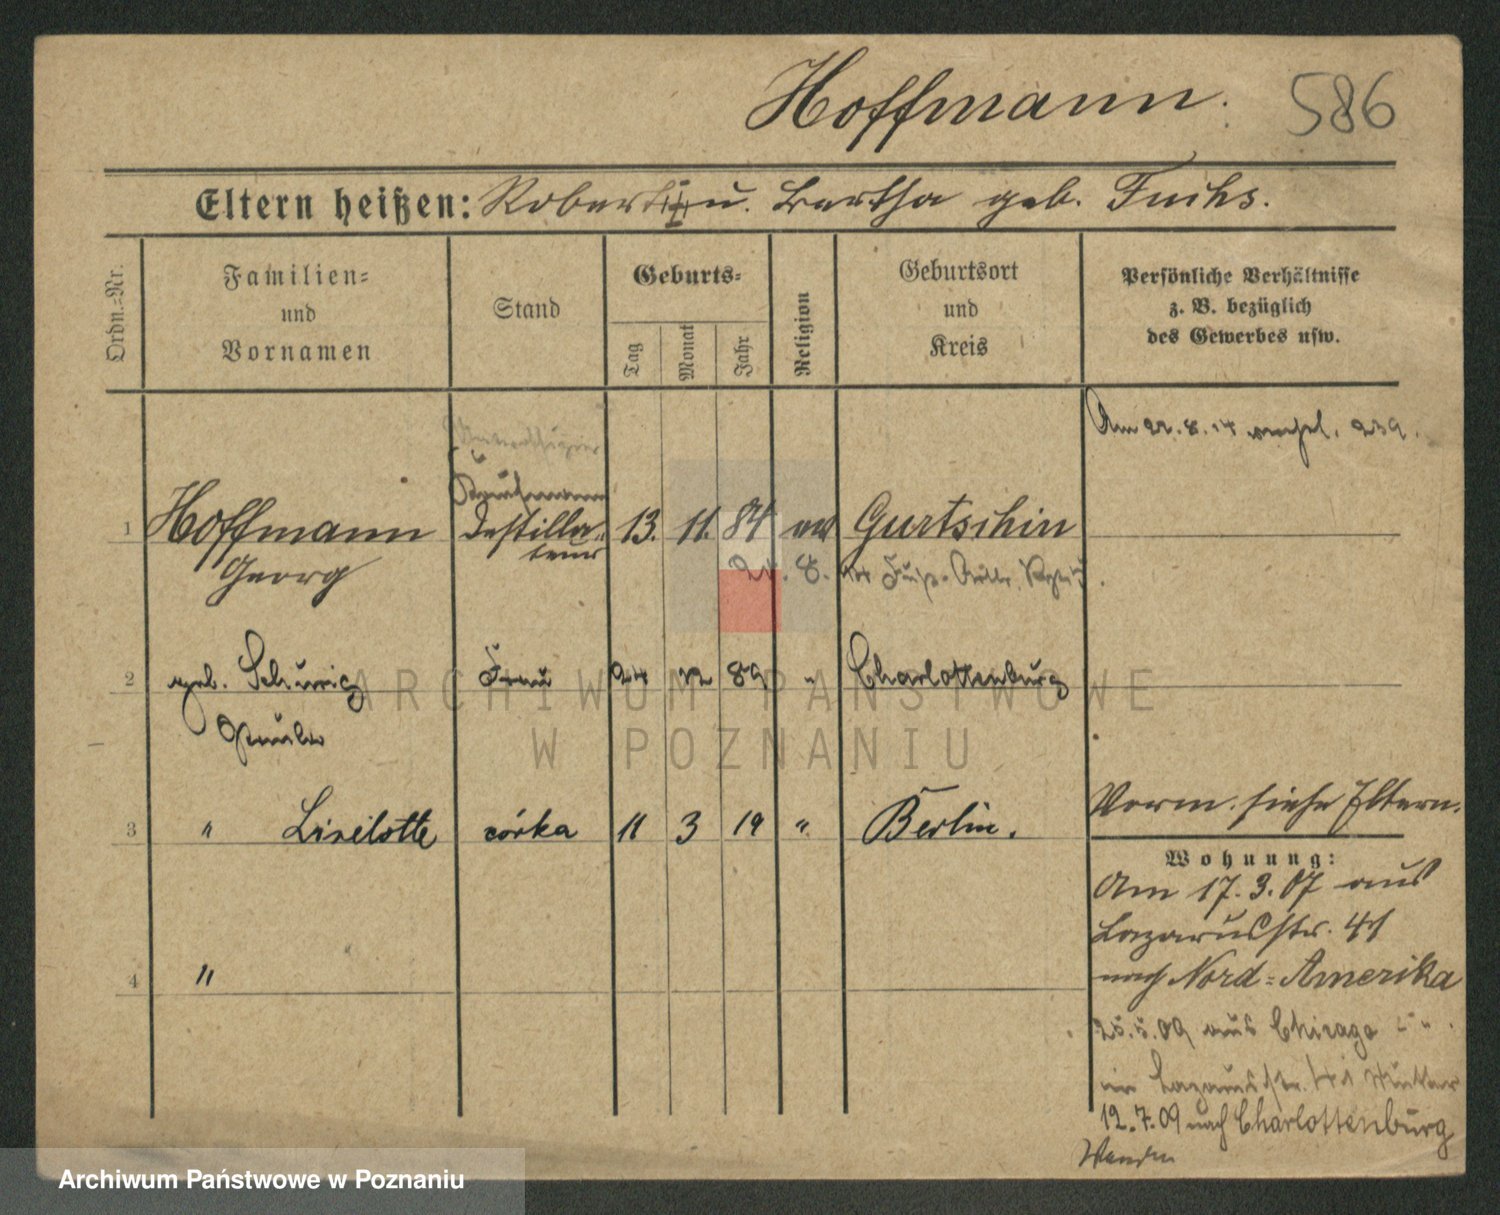 Hoffmann. 586
Eltern heißen: Robert u. Bertha geb. Fuchs.
Ordn.=Nr.
Familien=
und
Vornamen
Stand
Geburts=
Tag
Monat
Jahr
Religion
Geburtsort
und
Kreis
Persönliche Verhältnisse
z. B. bezüglich
des Gewerbes usw.
Am 22.8.14 239.
Kaufmann
1 Hoffmann Destilla- 13. 11. 84 ev Gurtschin
teur
Georg
8. Fuß-Artll.
2 geb. Schurig Frau 24 12 89 " Charlottenburg
Paula
3 " Liselotte córka 11 3 19 " Berlin.
4 "
Vorm. siehe Eltern.
Wohnung:
Am 17.3.07 aus
Lazarusstr. 41
nach Nord=Amerika
25.5.09 aus Chicago
in Lazarusstr. 41 Mutter
12.7.09 nach Charlottenburg
Wenden
ARCHIWUM PAŃSTWOWE
W POZNANIU
Archiwum Państwowe w Poznaniu